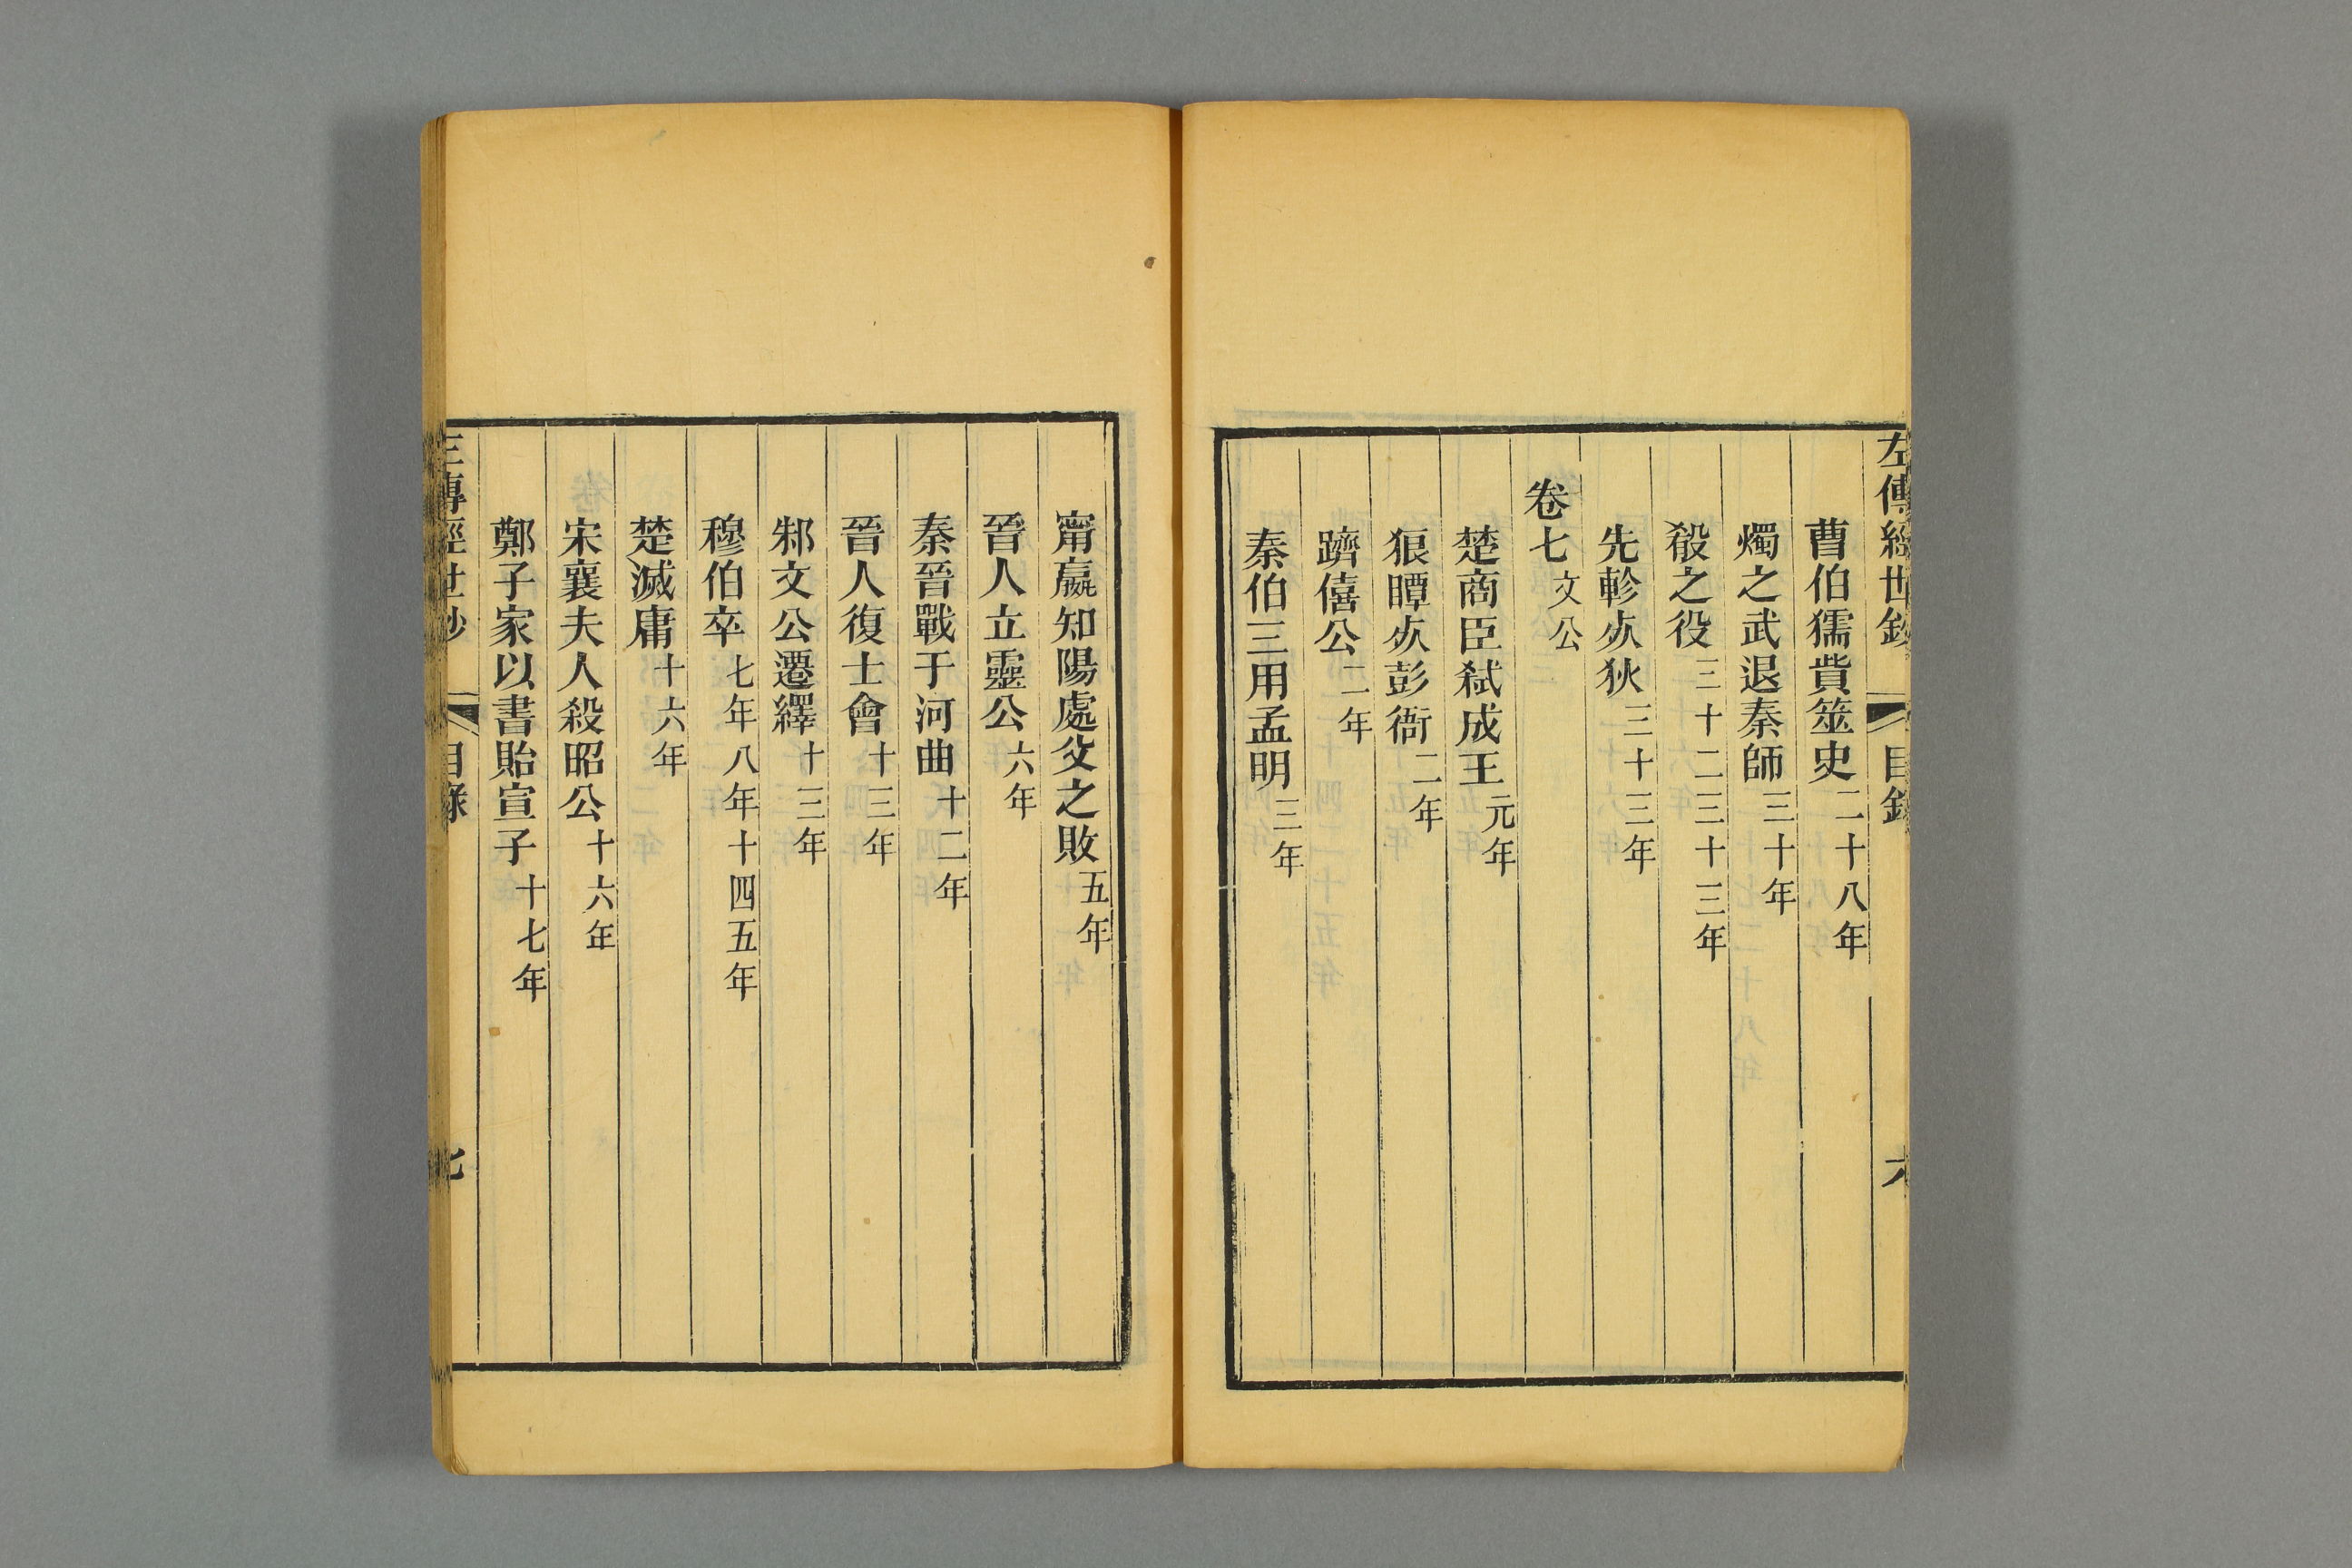 左傳經世鈔 目錄 六
曹伯獳貲筮史二十八年
燭之武退秦師三十年
殽之役三十二三十三年
先軫死狄三十三年
卷七文公
楚商臣弑成王元年
狼瞫死彭衙二年
躋僖公二年
秦伯三用孟明三年
甯嬴知陽處父之敗五年
晉人立靈公六年
秦晉戰于河曲十二年
晉人復士會十三年
邾文公遷繹十三年
穆伯卒七年八年十四五年
楚滅庸十六年
宋襄夫人殺昭公十六年
鄭子家以書貽宣子十七年
左傳經世鈔 目錄 七